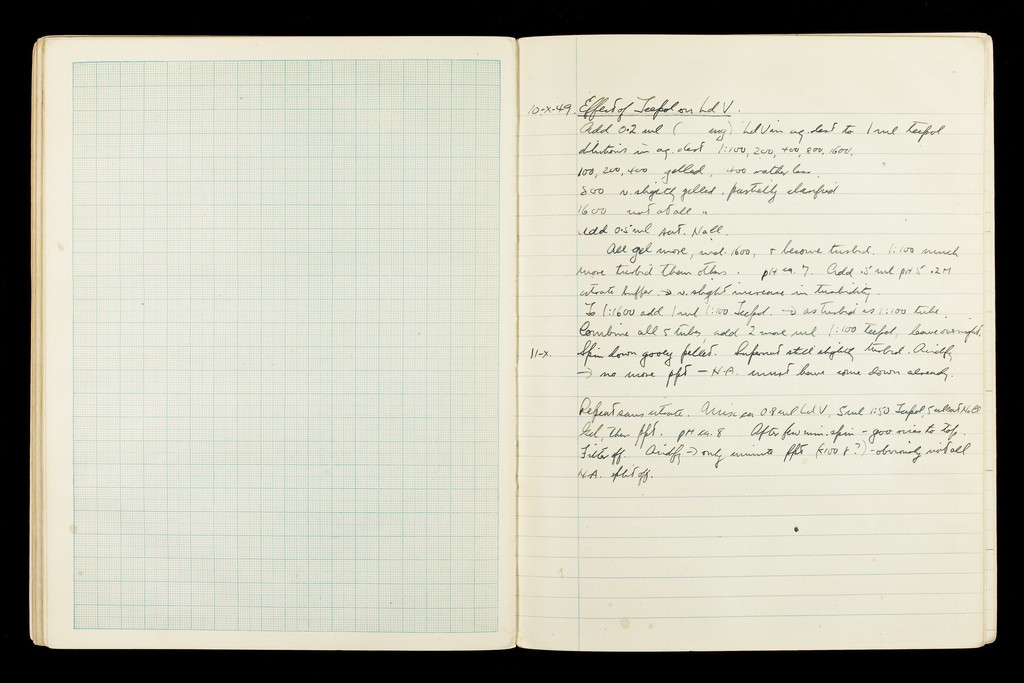 10-x-49. Effect of Teepol on Ld V.
Add 0.2 ml ( mg) Ld V in aq. dest to 1 ml teepol
dilutions in aq. dest 1:100, 200, 400, 800, 1600.
100, 200, 400 gelled, 400 rather less.
800 v. slightly gelled, partially clarified
1600 not at all "
Add 0.5 ml sat. NaCl.
All gel more, incl. 1600, + become turbid. 1:100 much
more turbid than others. pH ca. 7. Add .5 ml pH 5 .2M
citrate buffer → v. slight increase in turbidity.
To 1:1600 add 1 ml 1:100 Teepol. → as turbid as 1:100 tube.
Combine all 5 tubes, add 2 more ml 1:100 teepol, leave overnight.
11-x. Spin down gooey pellet. Supernat still slightly turbid. Acidify
→ no more ppt — N.A. must have come down already.
Repeat sans citrate. Mix ca 0.8 ml Ld V, 5 ml 1:50 Teepol, 5 ml sat NaCl
Gel, then ppt. pH ca. 8 After few min. spin - goo rises to top.
Filter off. Acidify → only minute ppt (<100 γ?) - obviously not all
N.A. split off.